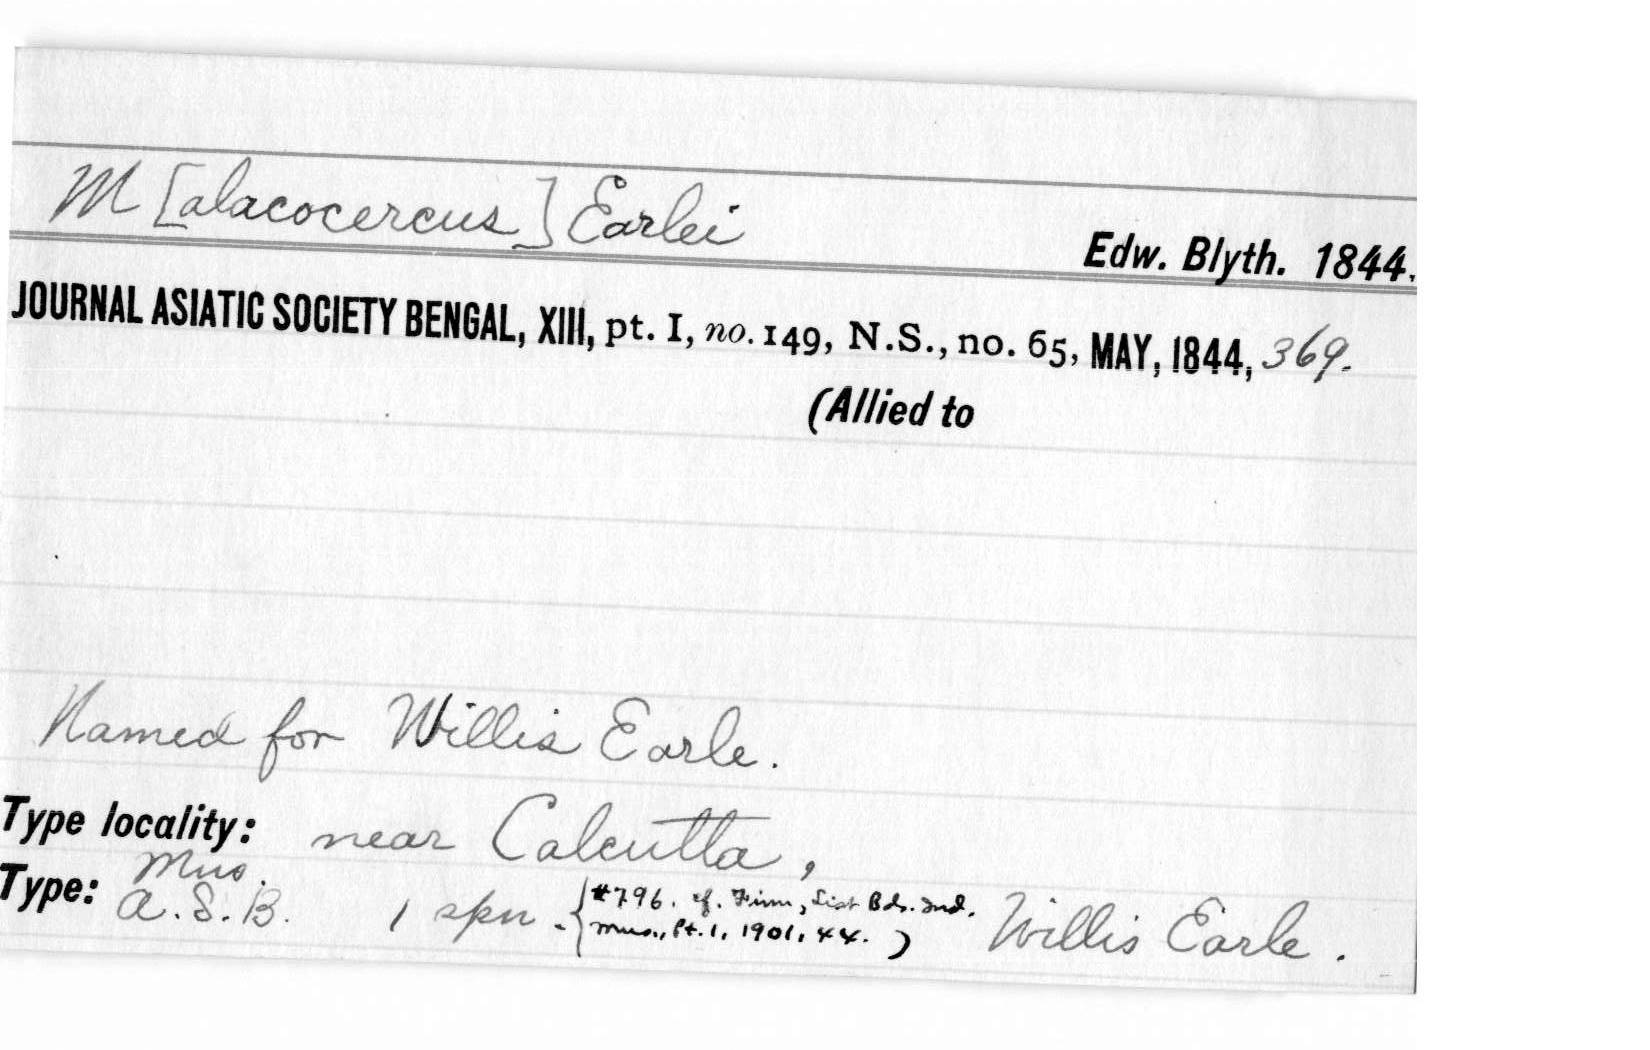 M [alacocercus] Earlei
Edw. Blyth. 1844.
JOURNAL ASIATIC SOCIETY BENGAL, XIII, pt. I, no. 149, N.S., no. 65, MAY, 1844, 369.
(Allied to
Named for Willis Earle.
Type locality: near Calcutta,
Mus.
Type: A.S.B. 1 spn. {#796. cf. Finn, List Bds. Ind.
Mus., Pt. 1, 1901, 44. ) Willis Earle.